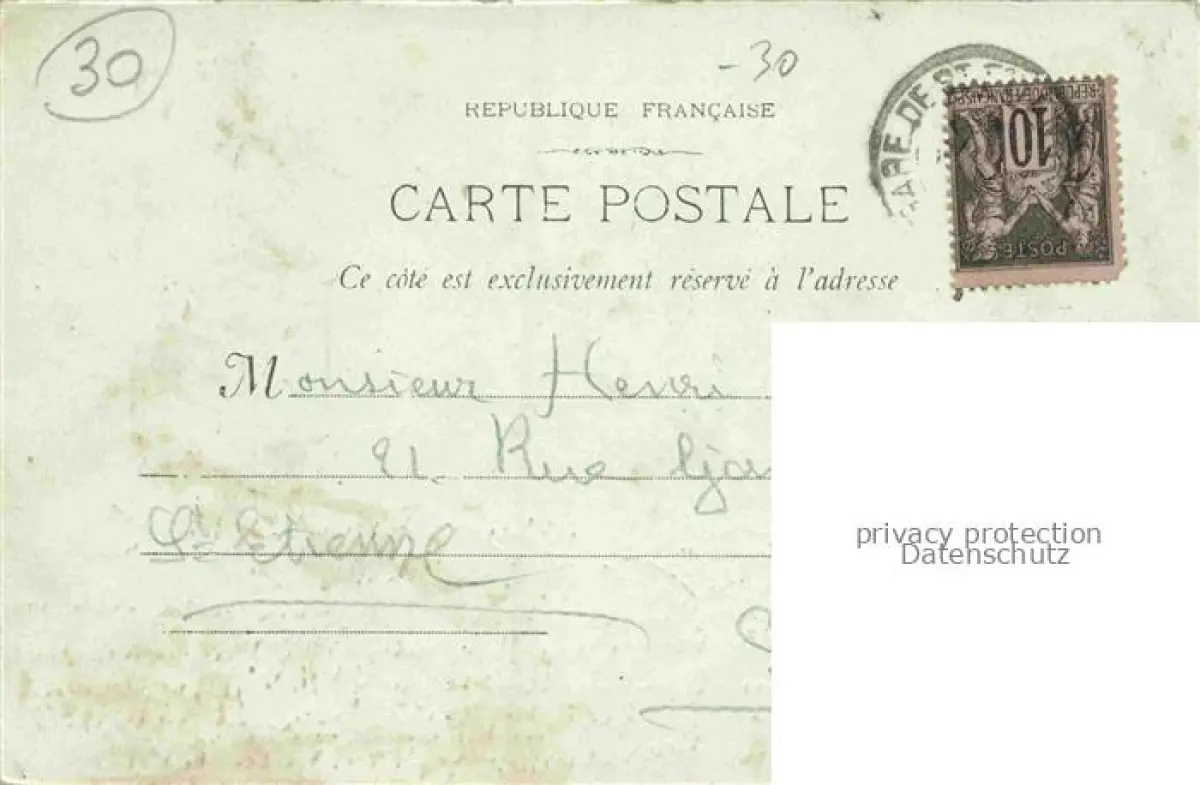 30
-30
REPUBLIQUE FRANÇAISE
CARTE POSTALE
Ce côté est exclusivement réservé à l'adresse
GARE DE ST ET
REPUBLIQUE FRANÇAISE
10
POSTES
Monsieur Henri
21 Rue
St Etienne
privacy protection
Datenschutz